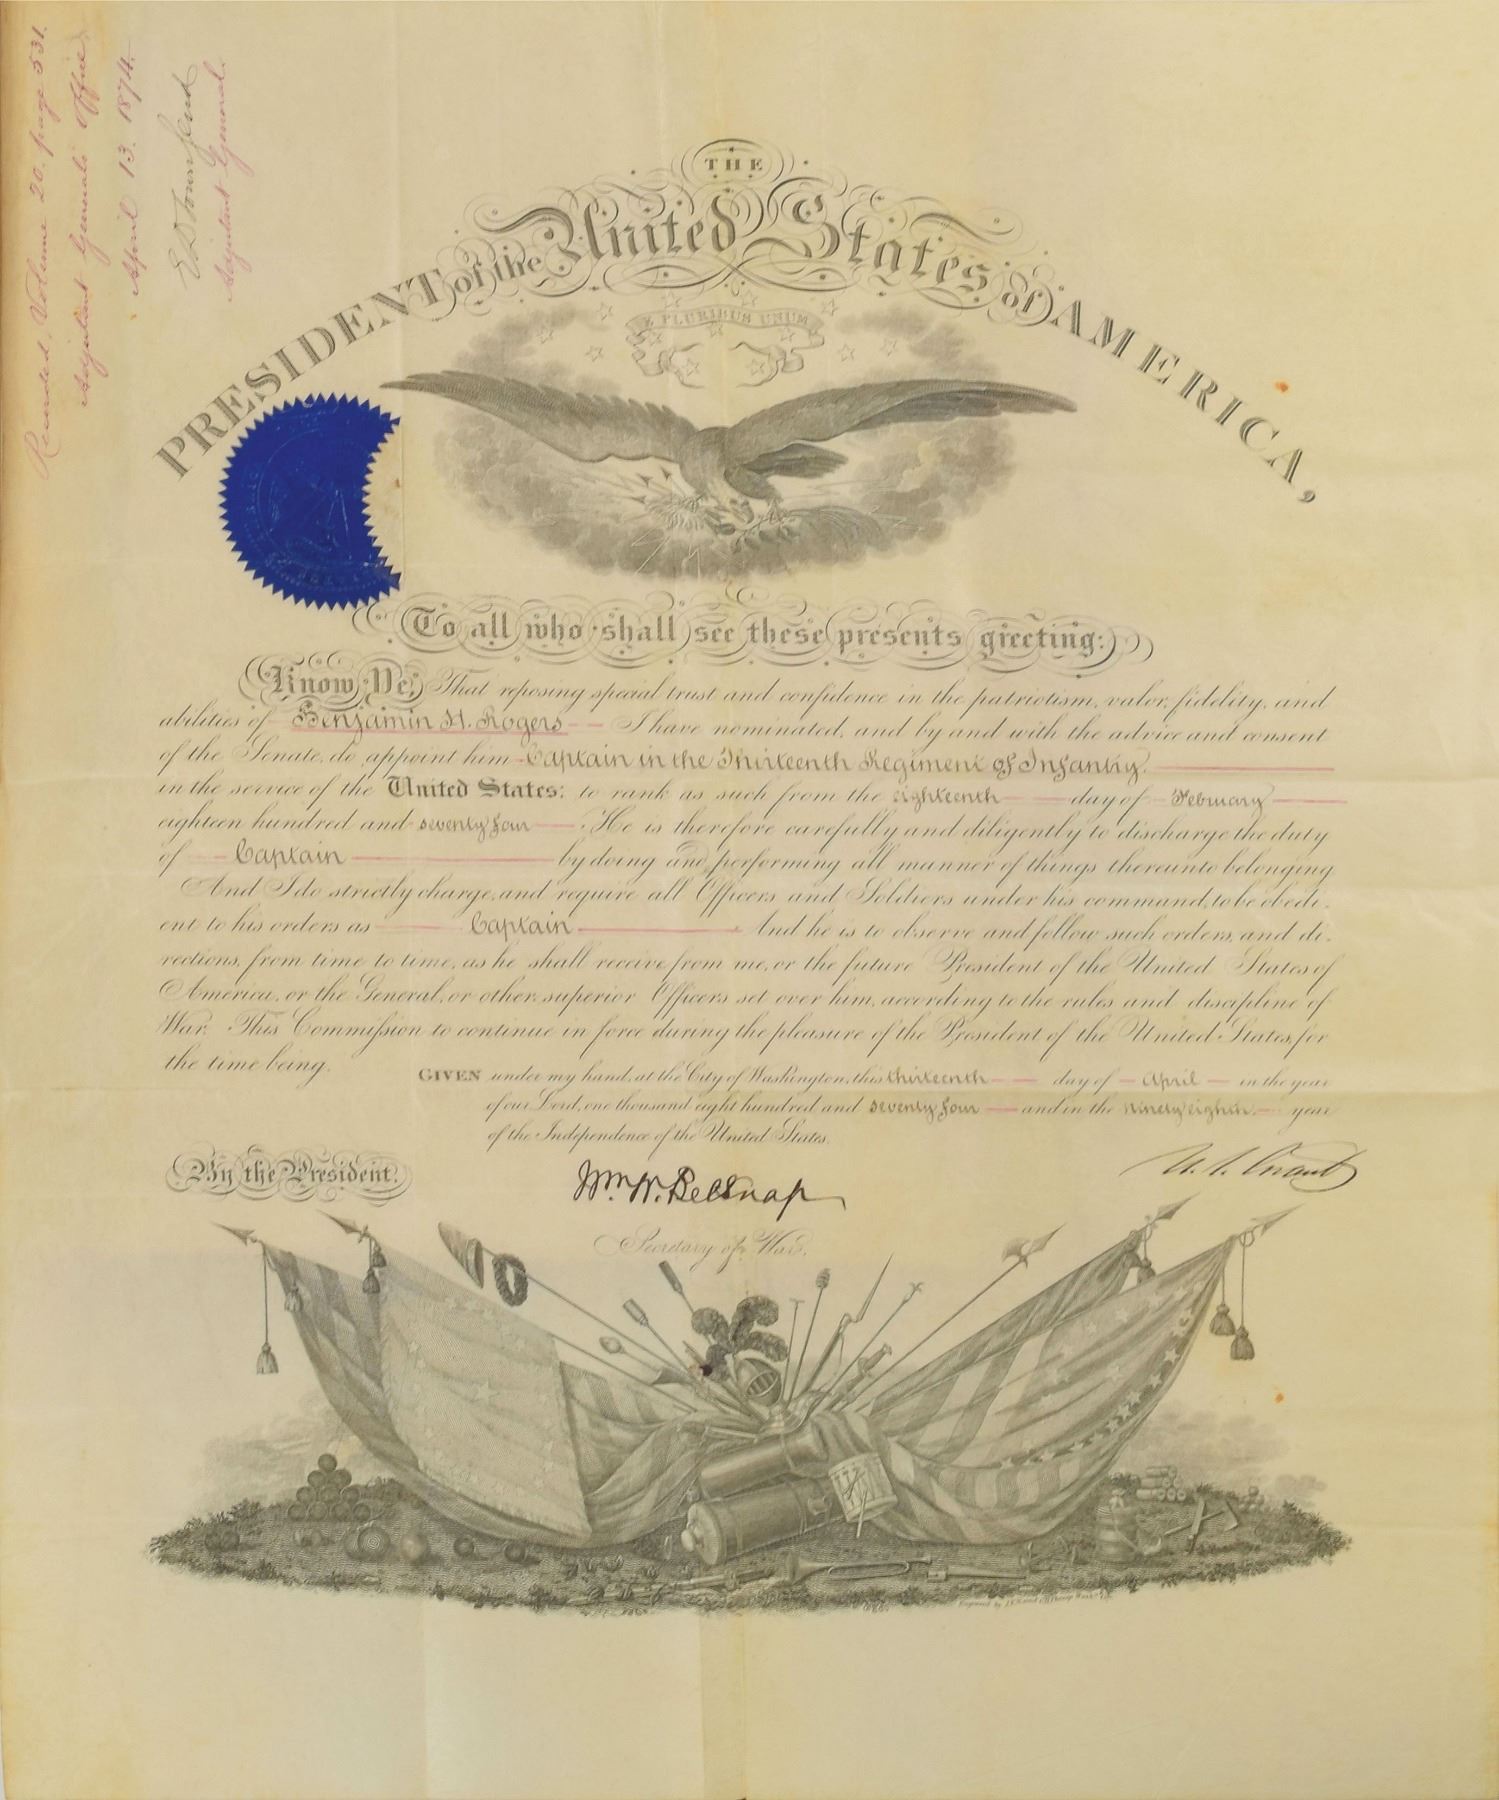 Recorded, Volume 20. page 531.
Adjutant Generals Office
April 13. 1874.
E D Townsend
Adjutant General.
THE
PRESIDENT of the United States of AMERICA,
E PLURIBUS UNUM
To all who shall see these presents greeting:
Know Ye, That reposing special trust and confidence in the patriotism, valor, fidelity, and
abilities of Benjamin H. Rogers I have nominated, and by and with the advice and consent
of the Senate, do appoint him Captain in the Thirteenth Regiment of Infantry.
in the service of the United States: to rank as such from the eighteenth day of February
eighteen hundred and seventy four. He is therefore carefully and diligently to discharge the duty
of Captain by doing and performing all manner of things thereunto belonging
And I do strictly charge, and require all Officers and Soldiers under his command, to be obedi-
ent to his orders as Captain. And he is to observe and follow such orders, and di-
rections, from time to time, as he shall receive from me, or the future President of the United States of
America, or the General, or other superior Officers set over him, according to the rules and discipline of
War. This Commission to continue in force during the pleasure of the President of the United States, for
the time being.
GIVEN under my hand, at the City of Washington, this thirteenth day of April in the year
of our Lord, one thousand eight hundred and seventy four and in the ninety eighth year
of the Independence of the United States.
By the President.
U. S. Grant
Wm. W. Belknap
Secretary of War.
Engraved by